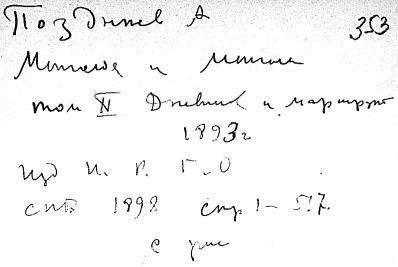 Позднеев А 353
Монголия и монголы
том II Дневник и маршрут
1893 г
изд И. Р. Г. О
СПб 1898 стр 1 - 517.
с рис